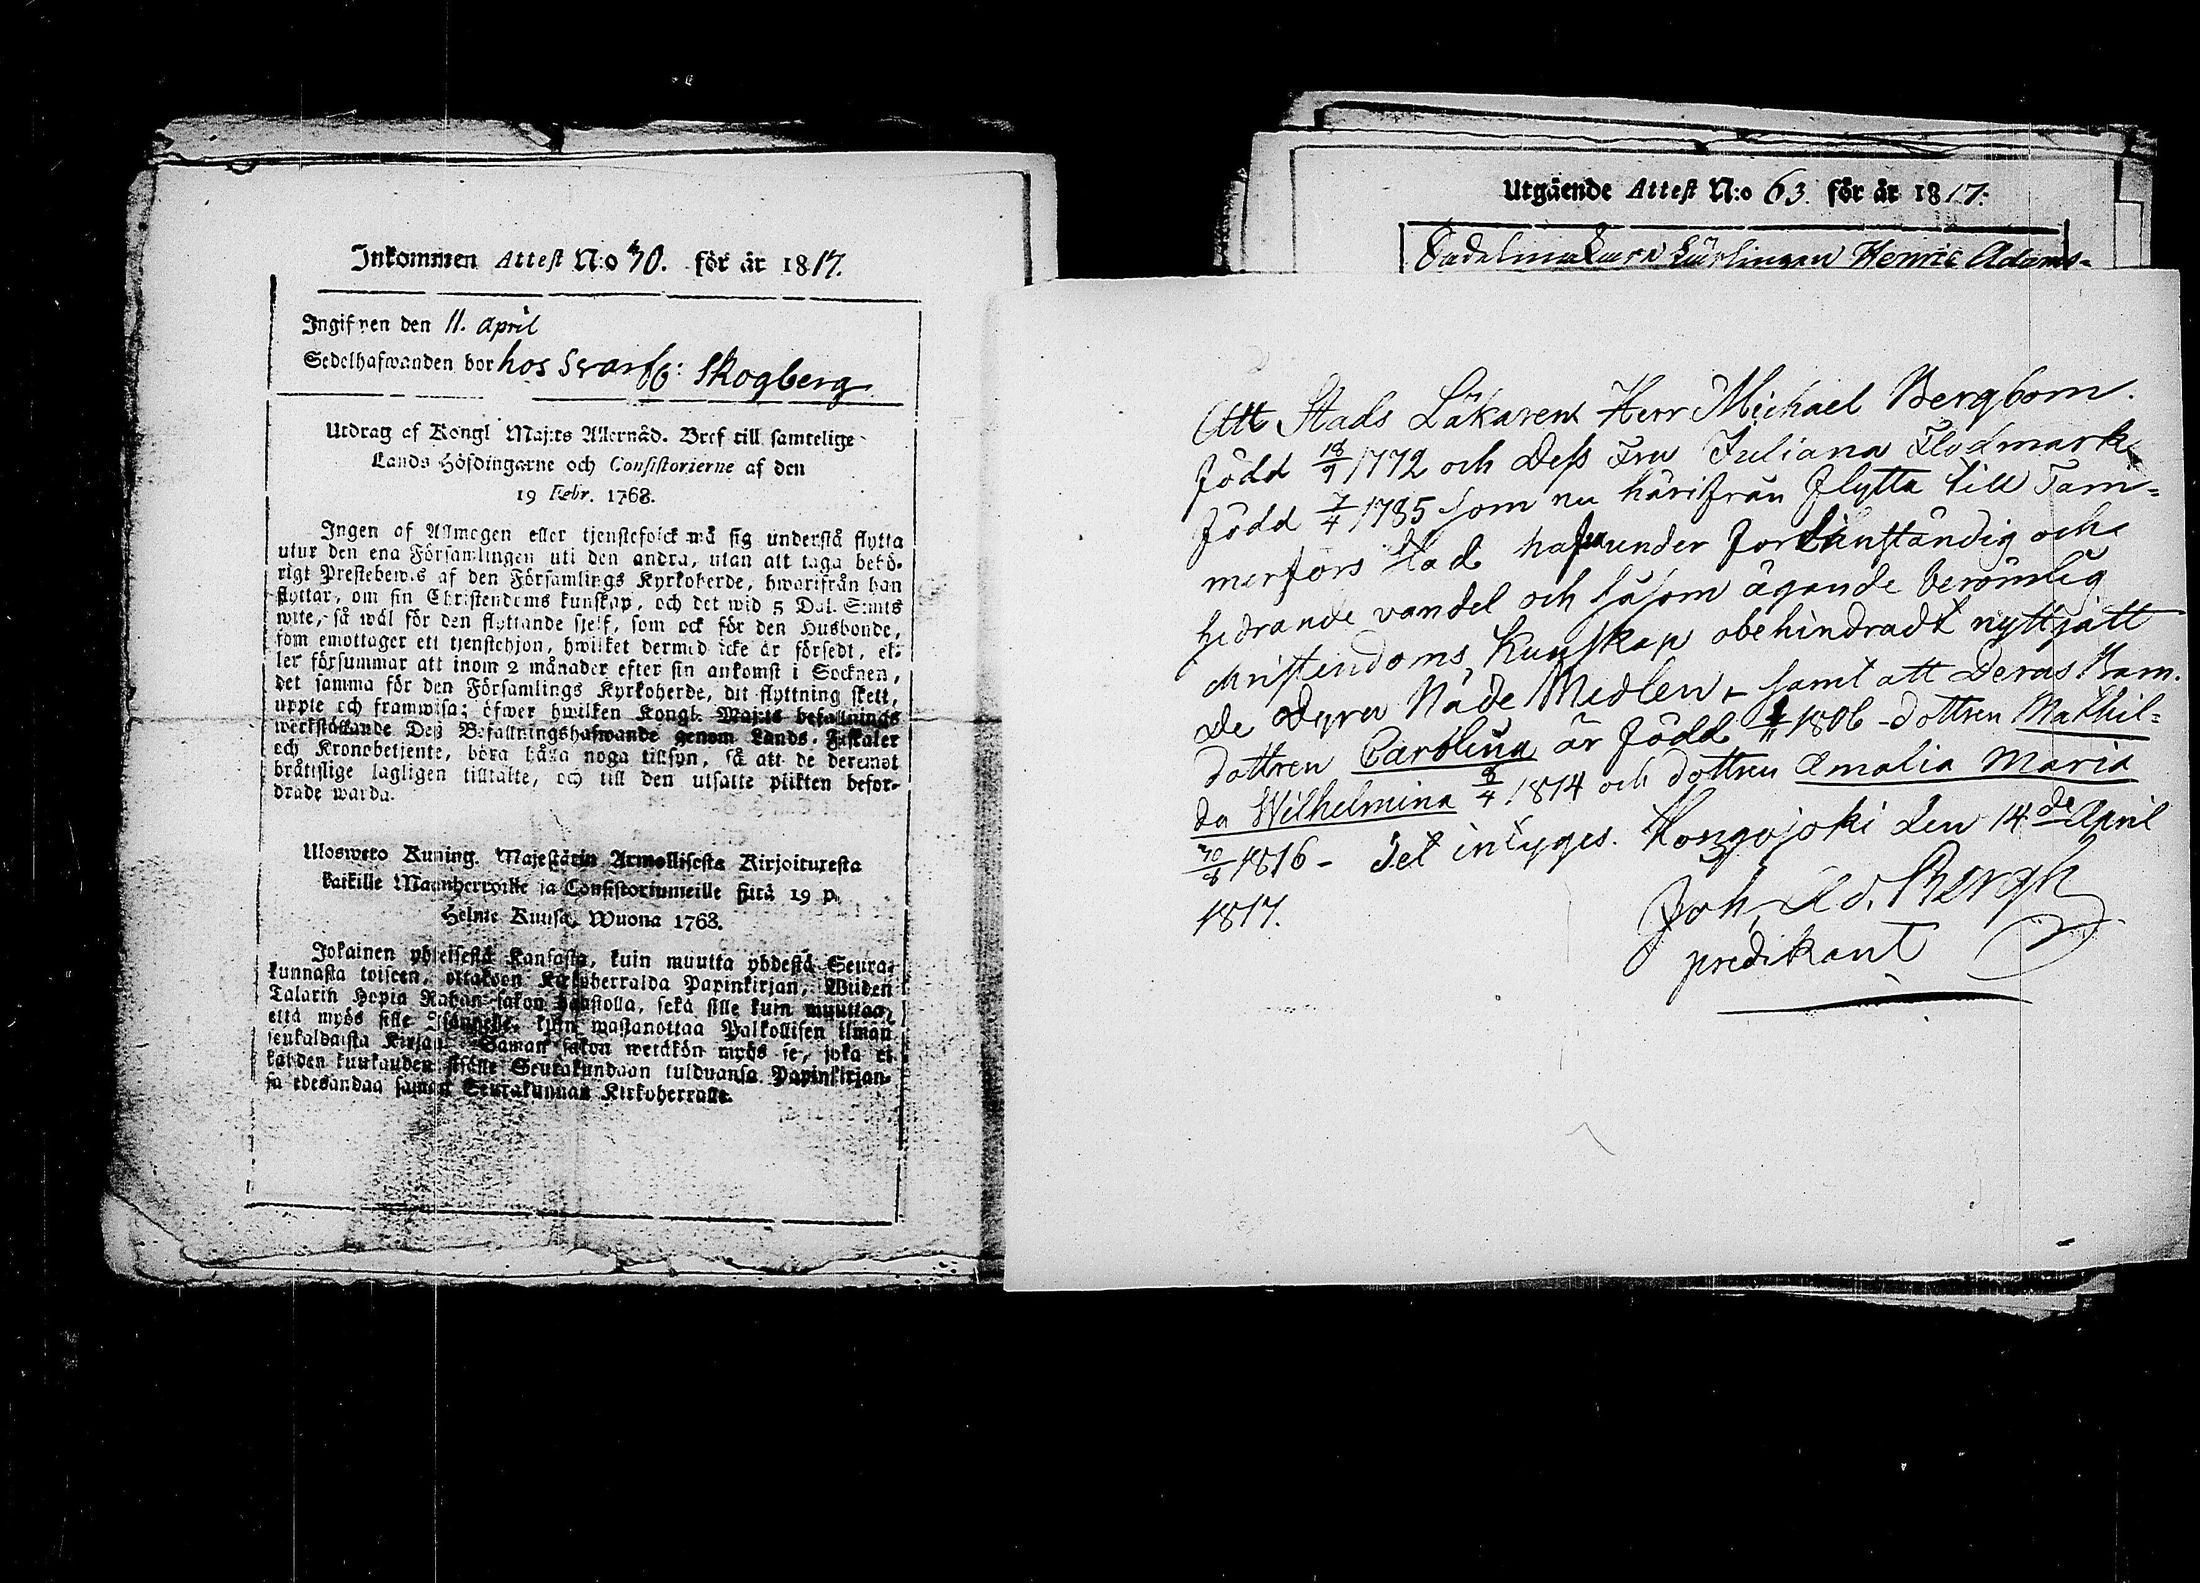 Inkommen Attest N:o 70. för år 1817.
Ingifven den 11. april
Sedelhafwanden bor hos Skogberg
Utdrag af Kongl Maj:ts Allernåd. Bref till samtelige
Lands Höfdingarne och Consistorierne af den
19 Febr. 1768.
Ingen af Allmogen eller tjenstefolck må sig understå flytta
utur den ena Församlingen uti den andra, utan att taga behö-
rigt Prestebewis af den Församlings Kyrkoherde, hwarifrån han
flyttar, om sin Christendoms kunskap, och det wid 5 Dal. S:mts
wite, så wäl för den flyttande sjelf, som ock för den Husbonde,
som emottager ett tjenstehjon, hwilket dermed icke är försedt, el-
ler försummar att inom 2 månader efter sin ankomst i Socknen,
det samma för den Församlings Kyrkoherde, dit flyttning skett,
uppte och framwisa; öfwer hwilken Kongl. Maj:ts befallnings
werkställande Deß Befallningshafwande genom Lands-Fiskaler
och Kronobetjente, böra hålla noga tillsyn, så att de deremot
bråtislige lagligen tilltalte, och till den utsatte plikten befor-
drade warda.
Uloswero Kuning. Majestätin Armollisesta Kirjoituxesta
kaikille Maanherroille ja Consistoriumeille siitä 19 p.
Helmie Kuusa, Wuona 1768.
Jokainen yhteisestä Kansasta, kuin muutta yhdestä Seura-
kunnasta toiseen, ottakoon Kirkoherralda Papinkirjan, Wiiden
Talarin Hopia Rahan sakon haastolla, sekä sille kuin muuttaa,
että myös sille Isännelle, kuin wastanottaa Palkollisen ilman
seukaldaista Kirjaa. Saman sakon wetäkön myös se, joka ei
kahden kuukauden sisälle Seurakundaan tulduansa Papinkirjan-
sa edesandaa saman Seurakunnan Kirkoherralle.
Utgående Attest N:o 63. för år 1817.
Sadelmakare Lärlingen Henric Adams-
Att Stads Läkaren Herr Michael Bergbom.
född 18/9 1772 och Deß Fru Juliana Flodmark
född 7/4 1785 som nu härifrån flytta till Tam-
merfors stad hafva under fort anständig och
hedrande vandel och såsom ägande berömlig
christendoms Kunskap obehindradt nyttjatt
de Dyra Nåde Medlen, samt att Deras Barn.
dottren Carolina är född 1806 - dottren Mathil-
da Wilhelmina 1814 och dottren Amalia Maria
1816 - Det intygas. Kongojoki den 14de April
1817.
Joh. Ad. Bergh
predikant